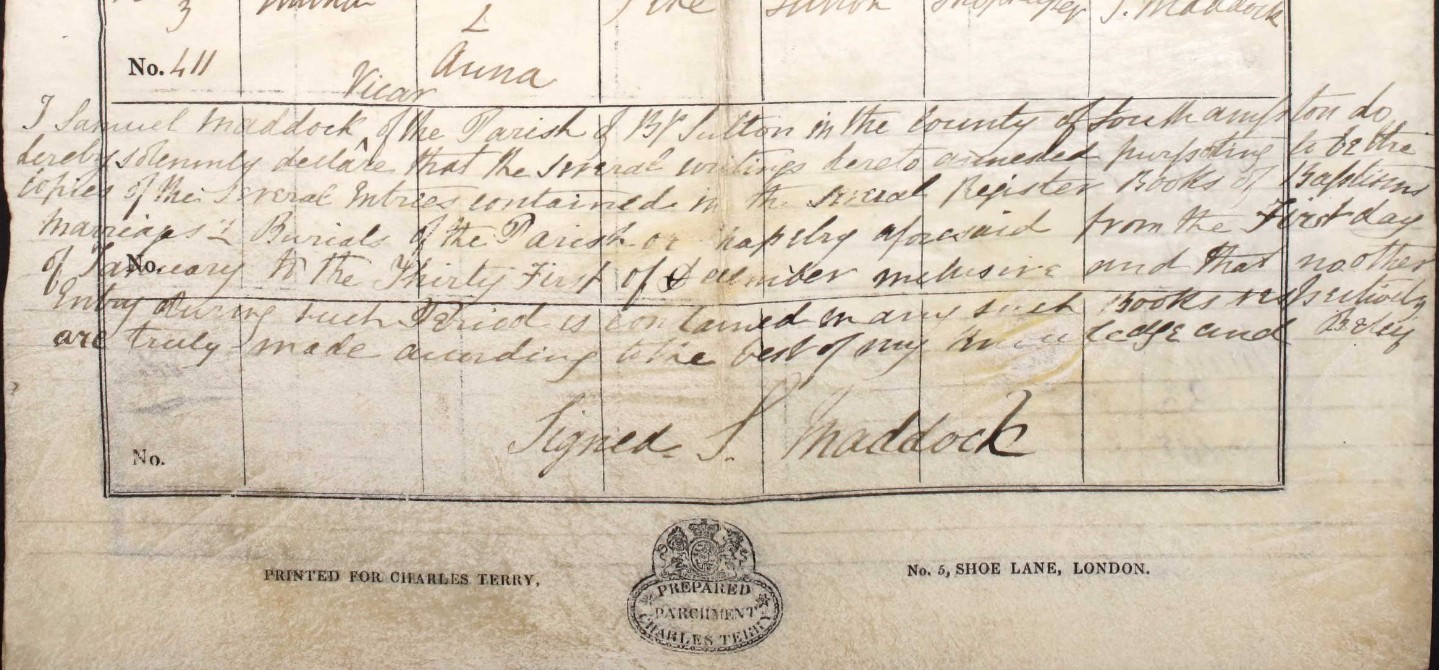 3 & Pike Sutton Shopkeeper S. Maddock
No. 411 Anna
Vicar
I Samuel Maddock of the Parish of Bp Sutton in the County of Southampton do
hereby solemnly declare that the several writings hereto annexed purporting to be the
Copies of the several Entries contained in the several Register Books of Baptisms
Marriages & Burials of the Parish or Chapelry aforesaid from the First day
of January to the Thirty First of December inclusive and that no other
No.
Entry during such Period is contained in any such Books respectively
are truly made according to the best of my Knowledge and Belief
Signed S. Maddock
No.
PRINTED FOR CHARLES TERRY,
No. 5, SHOE LANE, LONDON.
PREPARED
PARCHMENT
CHARLES TERRY